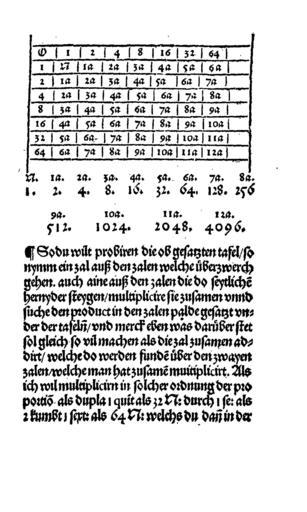 O | 1 | 2 | 4 | 8 | 16 | 32 | 64 |
1 | N | 1a | 2a | 3a | 4a | 5a | 6a
2 | 1a | 2a | 3a | 4a | 5a | 6a | 7a |
4 | 2a | 3a | 4a | 5a | 6a | 7a | 8a |
8 | 3a | 4a | 5a | 6a | 7a | 8a | 9a |
16 | 4a | 5a | 6a | 7a | 8a | 9a | 10a |
32 | 5a | 6a | 7a | 8a | 9a | 10a | 11a |
64 | 6a | 7a | 8a | 9a | 10a | 11a | 12a |
N. 1a. 2a. 3a. 4a. 5a. 6a. 7a. 8a.
1. 2. 4. 8. 16. 32. 64. 128. 256
9a. 10a. 11a. 12a.
512. 1024. 2048. 4096.
¶ So du wilt probiren die ob gesatzten tafel/so
nymm ein zal auß den zalen welche überzwerch
gehen. auch aine auß den zalen die do seytlichē
hernyder steygen/multiplicire sie zusamen vnnd
suche den product in den zalen vnder gesatzt vn-
der der tafeln/vnd merck eben was darüber stet
sol gleich so vil machen als die zal zusamen ad-
dirt/welche do werden fundē über den zwayen
zalen/welche man hat zusamē multiplicirt. Als
ich wil multiplicirn in solcher ordnung der pro
portiō als dupla 1 quit als 32 N: durch 1 se: als
2 kumbt 1 sext: als 64 N: welchs du dañ in der